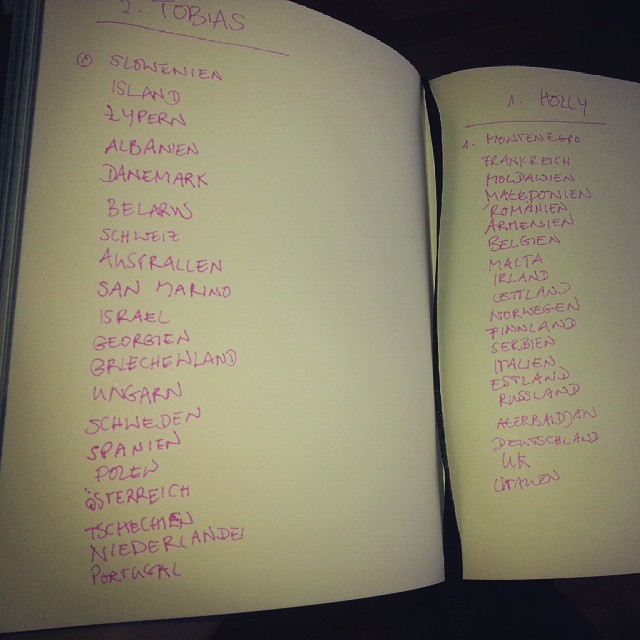 2. TOBIAS
① SLOWENIEN
ISLAND
ZYPERN
ALBANIEN
DÄNEMARK
BELARUS
SCHWEIZ
AUSTRALIEN
SAN MARINO
ISRAEL
GEORGIEN
GRIECHENLAND
UNGARN
SCHWEDEN
SPANIEN
POLEN
ÖSTERREICH
TSCHECHIEN
NIEDERLANDE
PORTUGAL
1. HOLLY
1. MONTENEGRO
FRANKREICH
MOLDAWIEN
MAZEDONIEN
RUMÄNIEN
ARMENIEN
BELGIEN
MALTA
IRLAND
LETTLAND
NORWEGEN
FINNLAND
SERBIEN
ITALIEN
ESTLAND
RUSSLAND
ASERBAIDJAN
DEUTSCHLAND
UK
LITAUEN